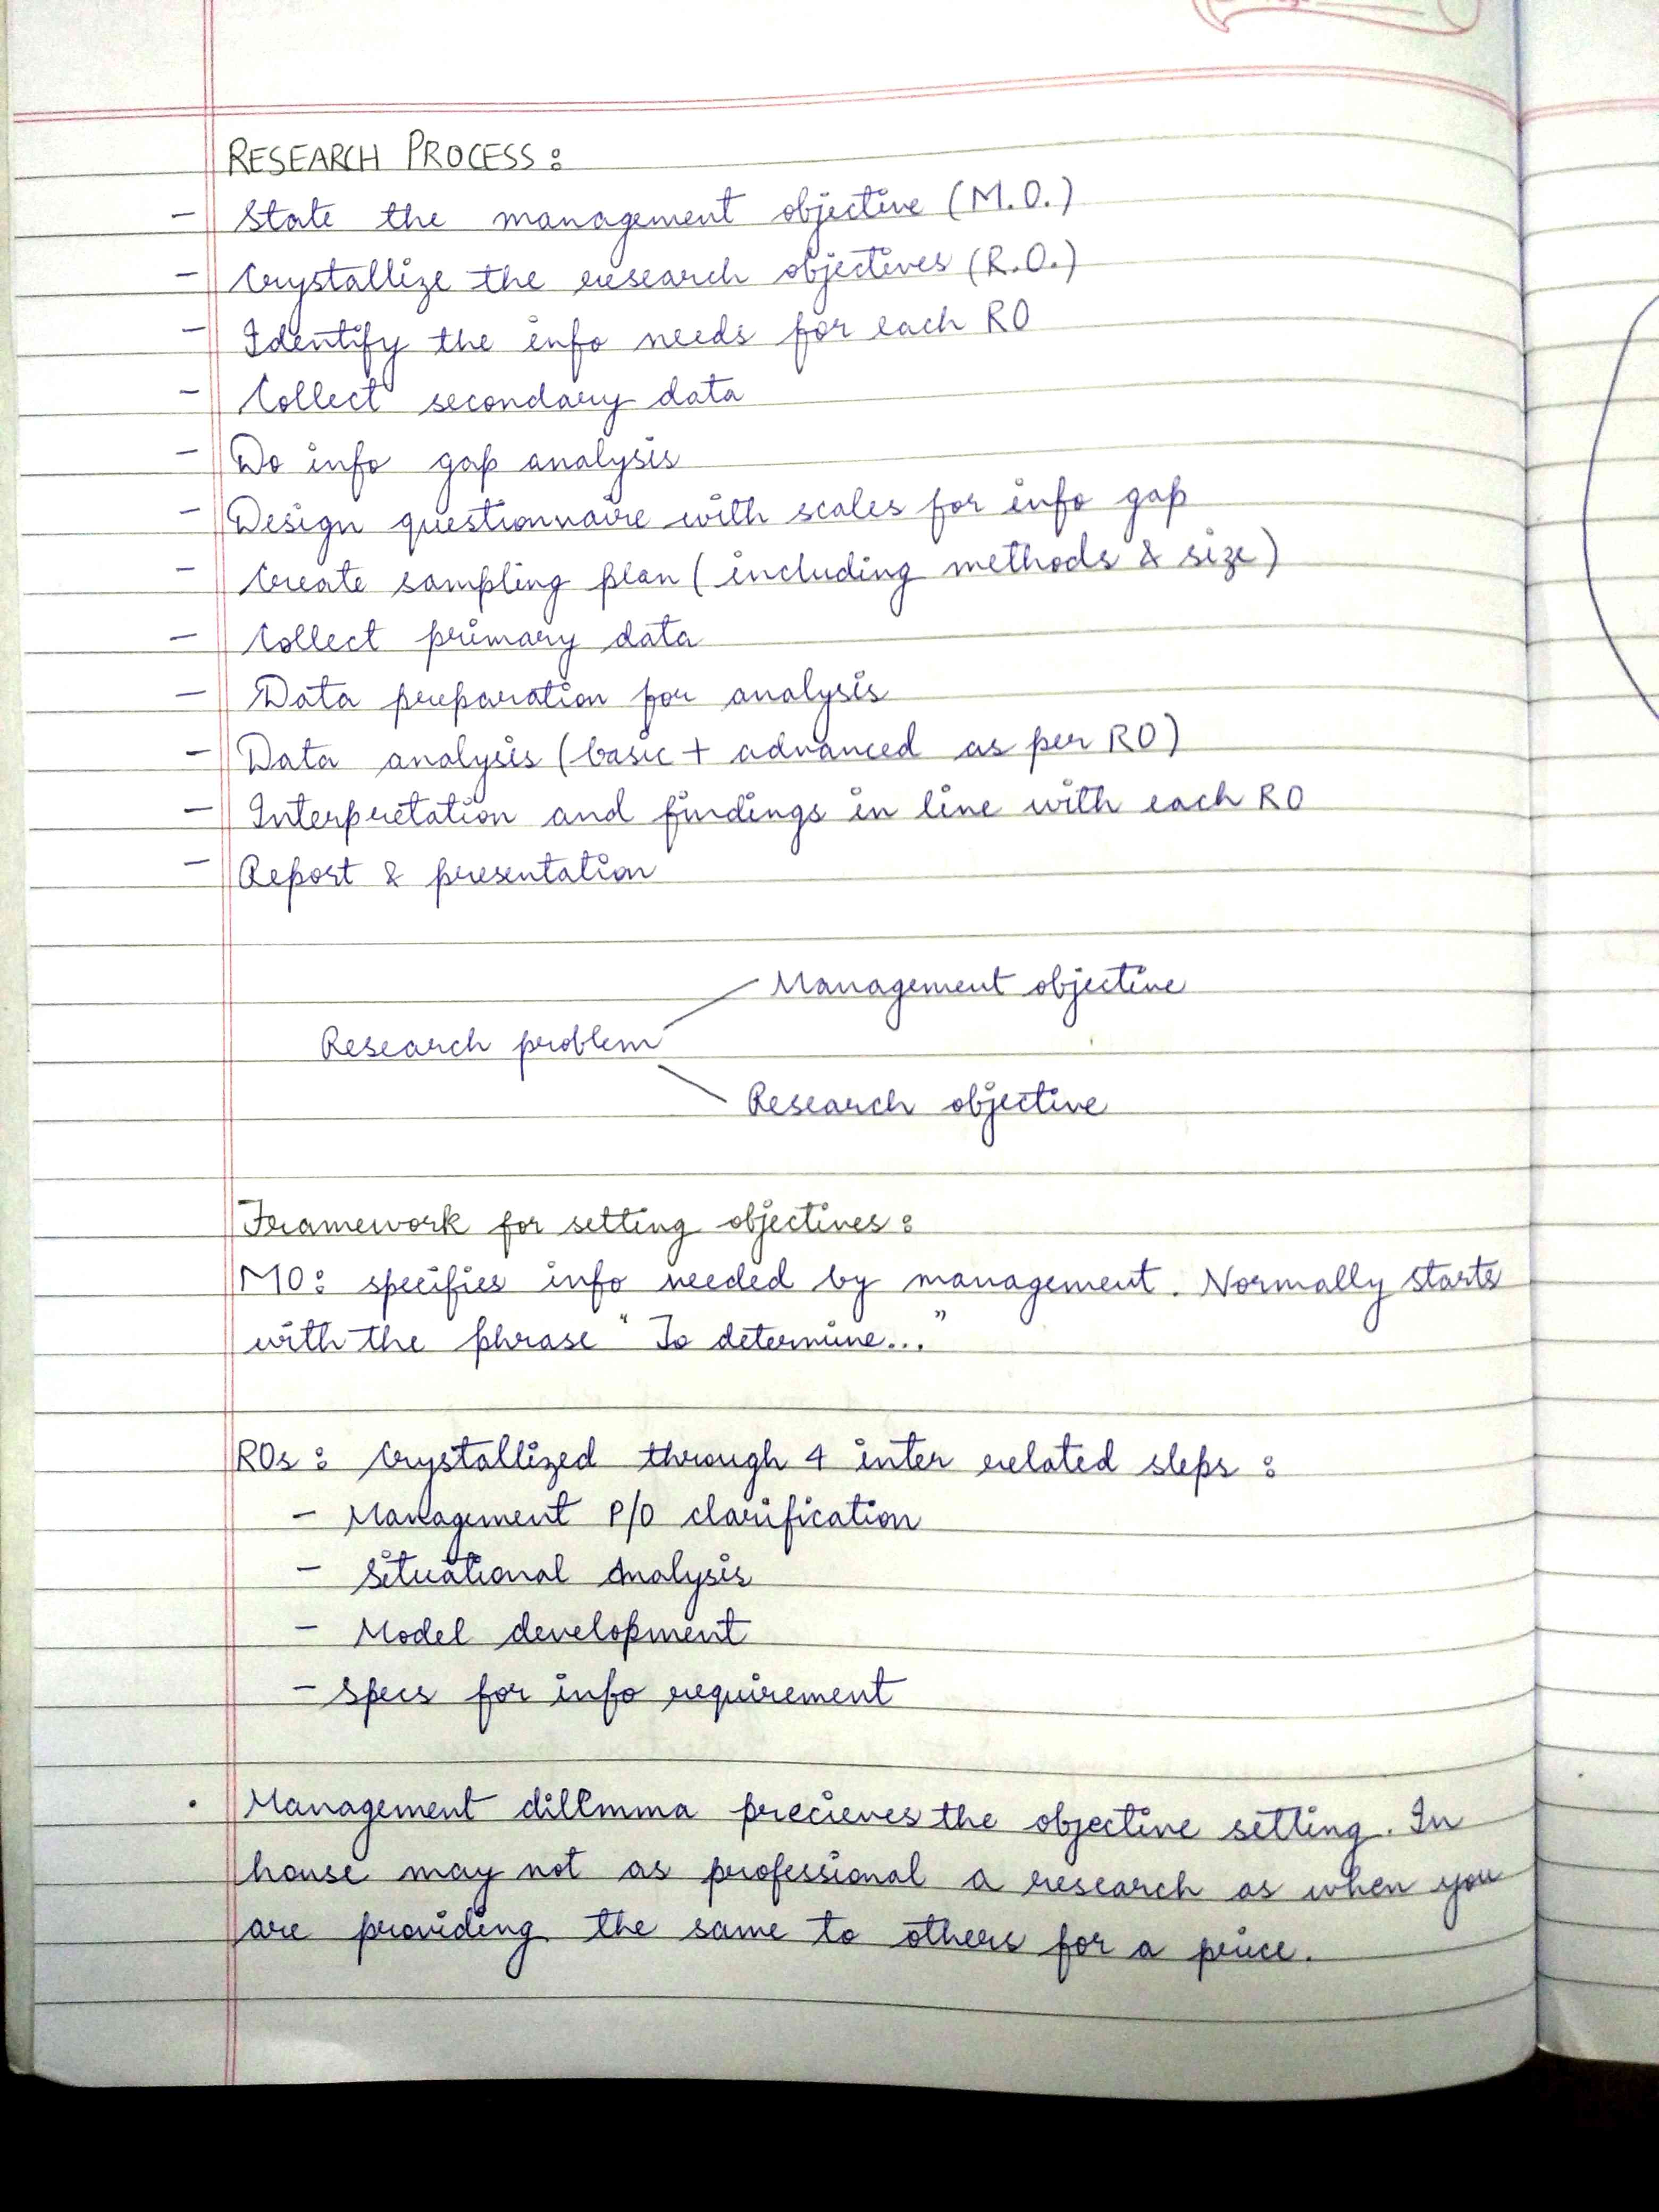 RESEARCH PROCESS :
- State the management objective (M.O.)
- Crystallize the research objectives (R.O.)
- Identify the info needs for each RO
- Collect secondary data
- Do info gap analysis
- Design questionnaire with scales for info gap
- Create sampling plan (including methods & size)
- Collect primary data
- Data preparation for analysis
- Data analysis (basic + advanced as per RO)
- Interpretation and findings in line with each RO
- Report & presentation
Management objective
Research problem
Research objective
Framework for setting objectives :
MO : specifies info needed by management. Normally starts
with the phrase "To determine..."
ROs : Crystallized through 4 inter related steps :
- Management P/O clarification
- Situational Analysis
- Model development
- Specs for info requirement
• Management dillmma precieves the objective setting. In
house may not as professional a research as when you
are providing the same to others for a price.